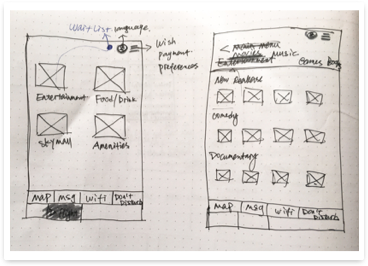 Waitlist language
Wish
payment
preferences
Entertainment Food/Drink
Skymall Amenities
map msg wifi Don't
Disturb
< Main menu
movies music
Entertainment Games
New Releases
Comedy
Documentary
map msg wifi Don't
Disturb